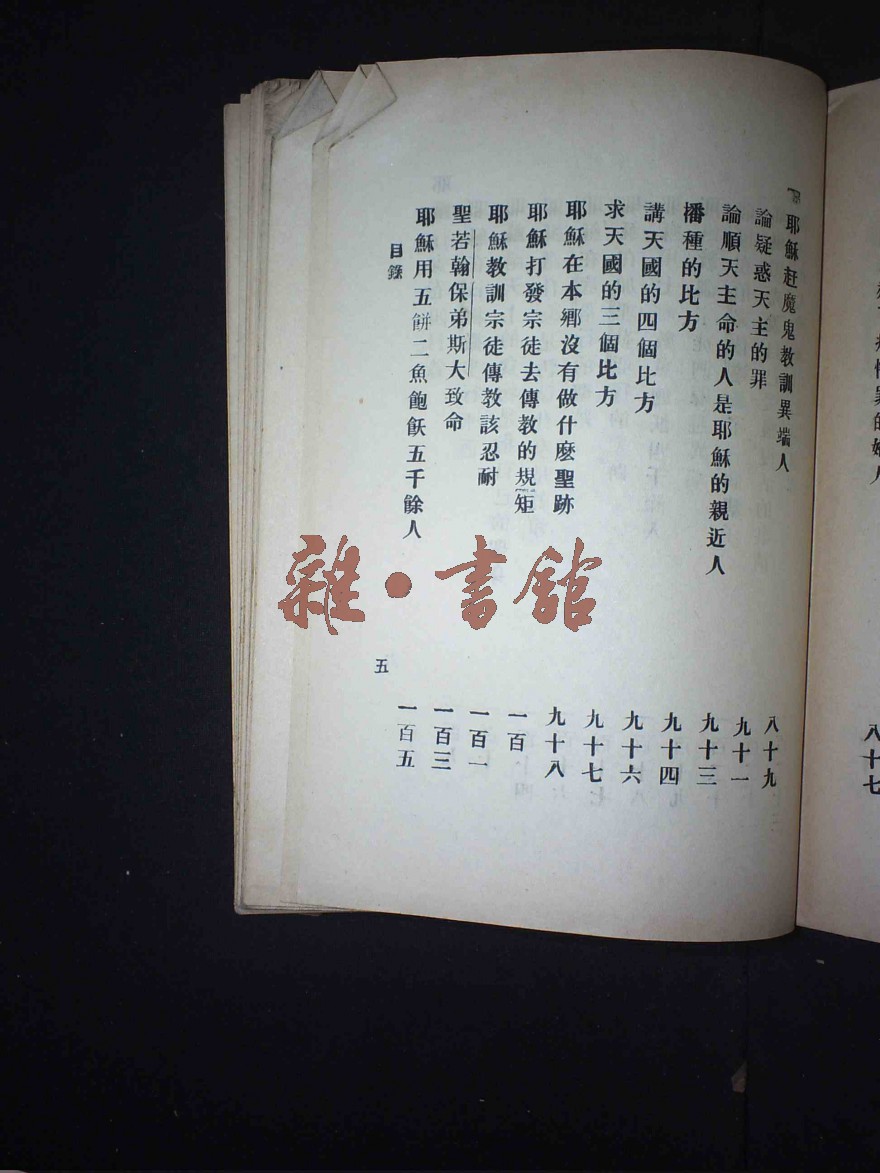 八十七
耶穌赶魔鬼教訓異端人 八十九
論疑惑天主的罪 九十一
論順天主命的人是耶穌的親近人 九十三
播種的比方 九十四
講天國的四個比方 九十六
求天國的三個比方 九十七
耶穌在本鄉沒有做什麽聖跡 九十八
耶穌打發宗徒去傳教的規矩 一百
耶穌教訓宗徒傳教該忍耐 一百一
聖若翰保弟斯大致命 一百三
耶穌用五餅二魚飽飫五千餘人 一百五
目錄 五
雜·書館